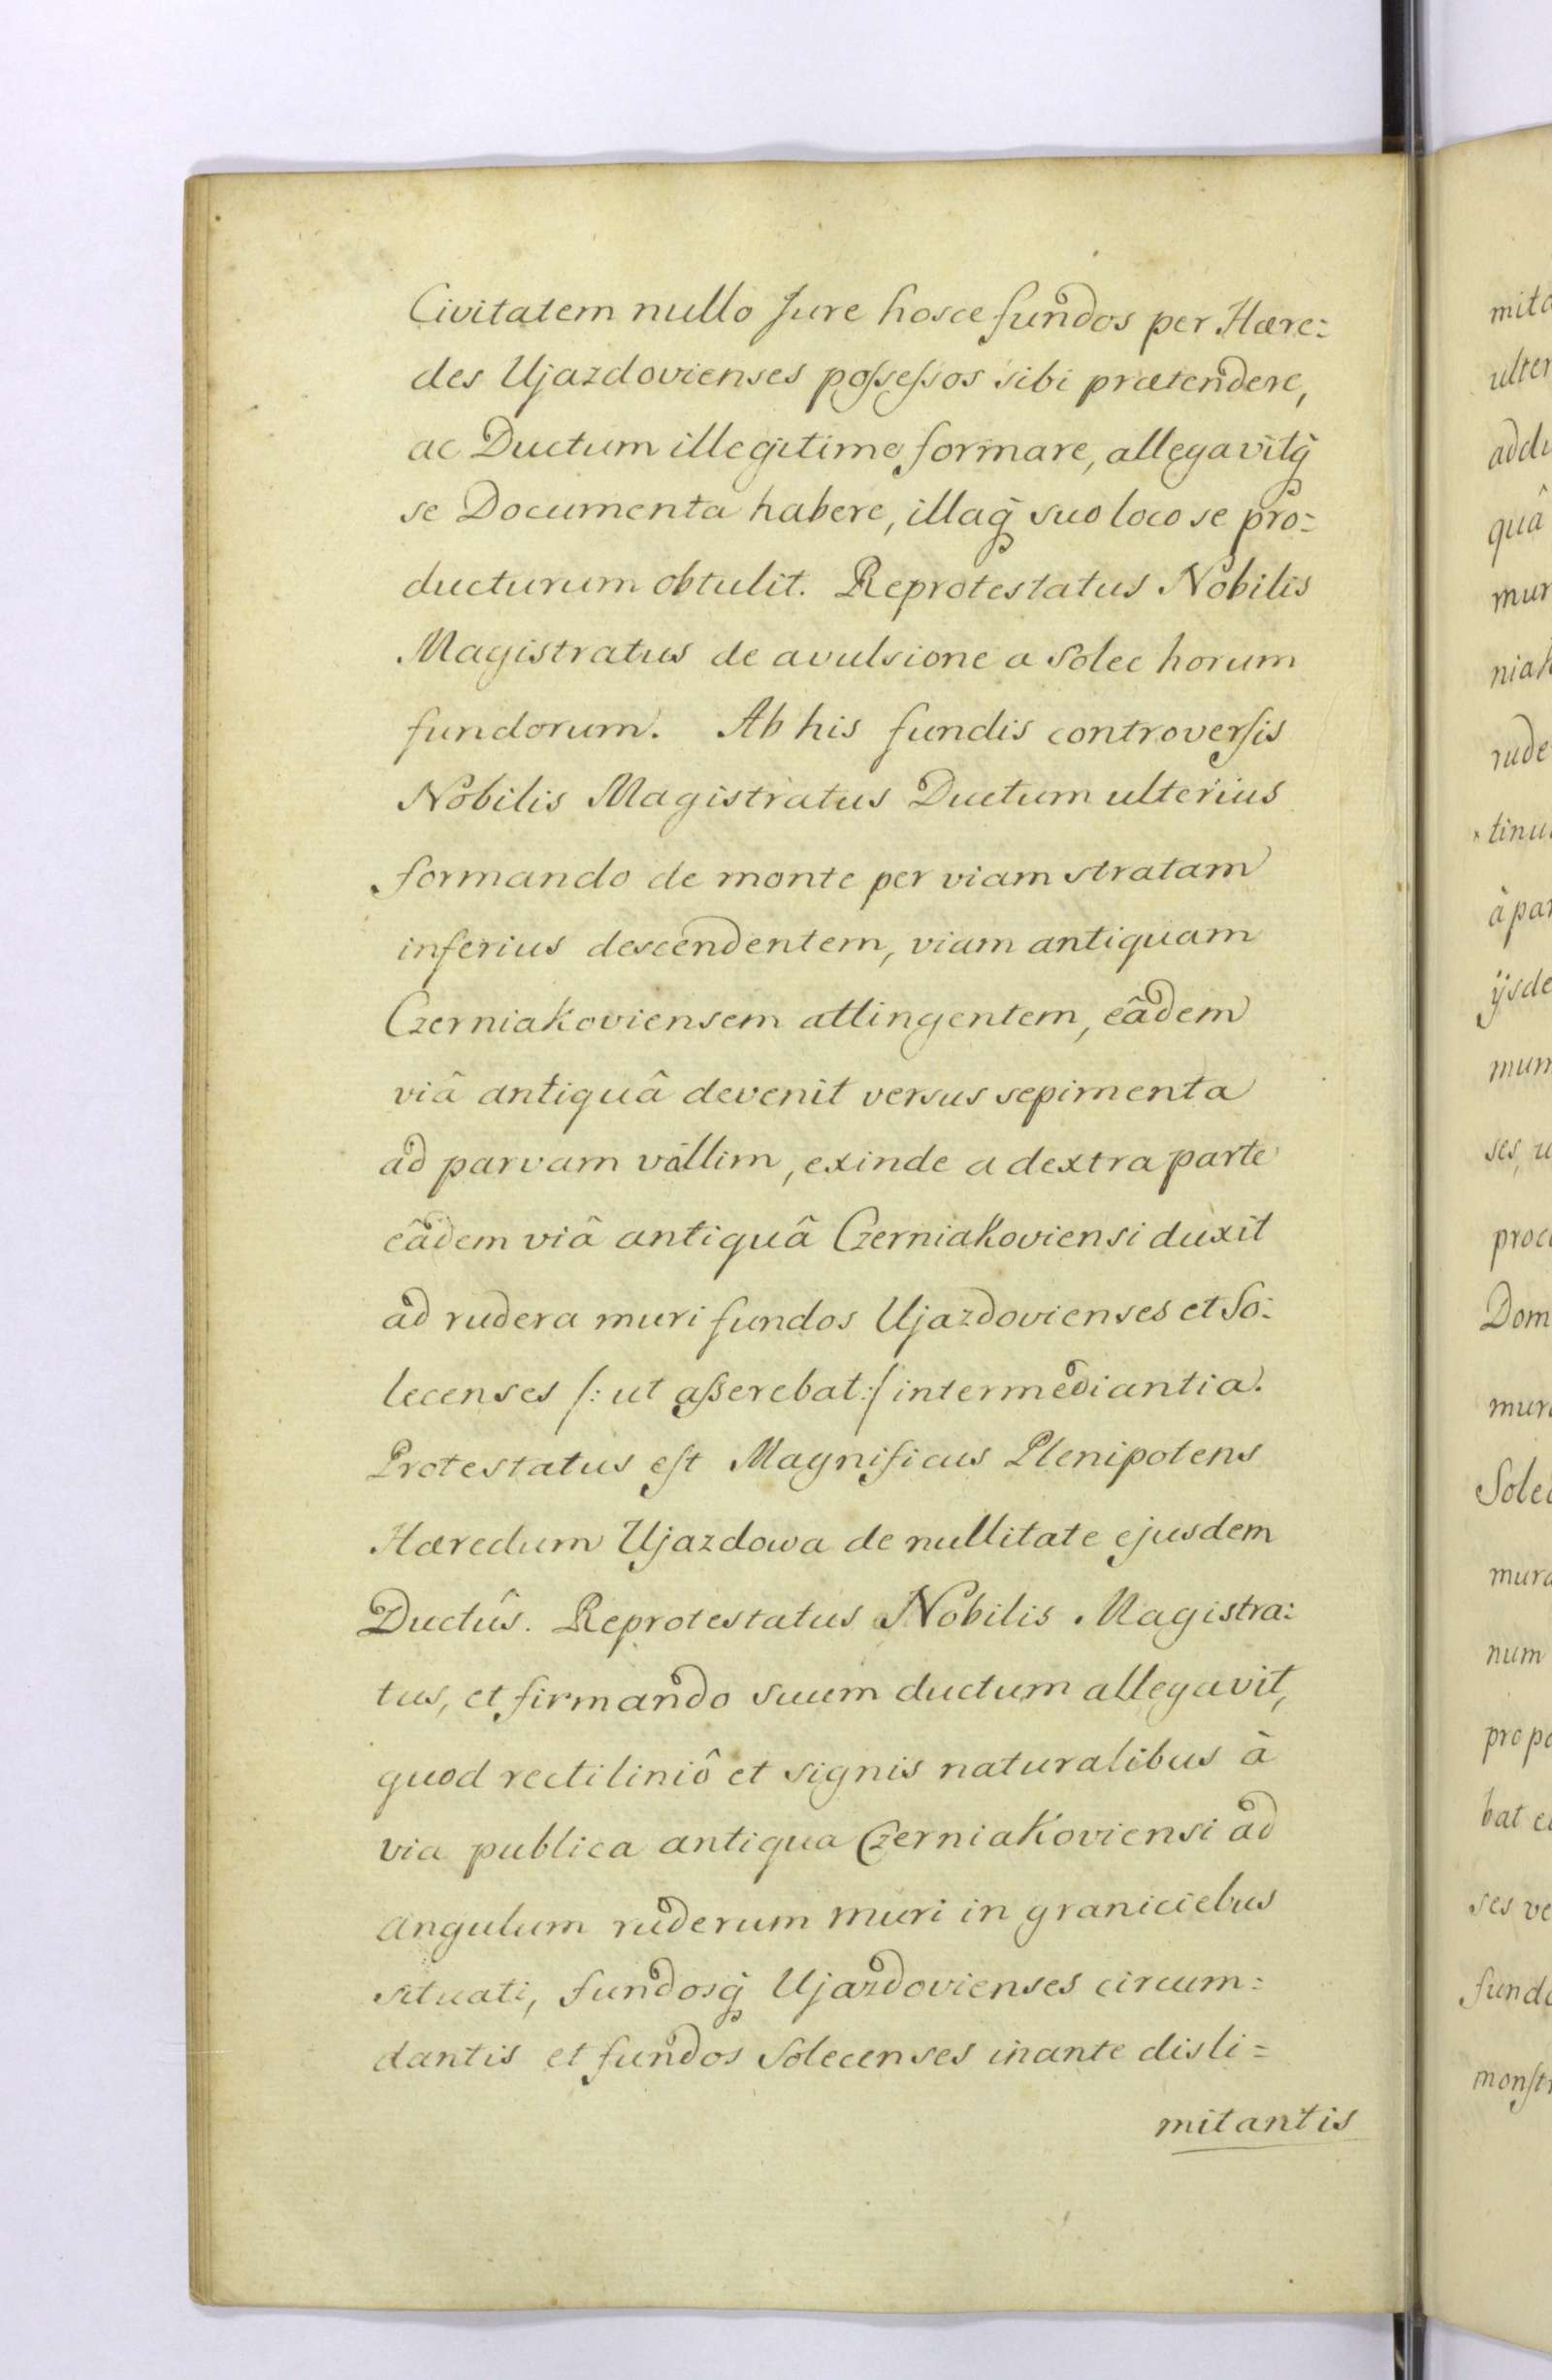 Civitatem nullo Jure hosce fundos per Hære=
des Ujazdovienses possessos sibi prætendere,
ac Ductum illegitime formare, allegavitq̃
se Documenta habere, illaq̃ suo loco se pro=
ducturum obtulit. Reprotestatus Nobilis
Magistratus de avulsione a Solec horum
fundorum. Ab his fundis controversis
Nobilis Magistratus Ductum ulterius
formando de monte per viam stratam
inferius descendentem, viam antiquam
Czerniakoviensem attingentem, eâdem
viâ antiquâ devenit versus sepimenta
ad parvam vallim, exinde a dextra parte
eâdem viâ antiquâ Czerniakoviensi duxit
ad rudera muri fundos Ujazdovienses et So=
lecenses /: ut asserebat :/ intermediantia.
Protestatus est Magnificus Plenipotens
Hæredum Ujazdowa de nullitate ejusdem
Ductûs. Reprotestatus Nobilis Magistra=
tus, et firmando suum ductum allegavit,
quod rectiliniô et signis naturalibus à
via publica antiqua Czerniakoviensi ad
angulum ruderum muri in graniciebus
situati, fundosq̃ Ujazdovienses circum=
dantis et fundos Solecenses inante disli=
mitantis
mita
ulter
addu
quâ
mur
niak
rude
tinu
à par
ÿsde
mum
ses, u
proc
Dom
mur
Solec
mura
num
prop
bat e
ses ve
fundo
monst